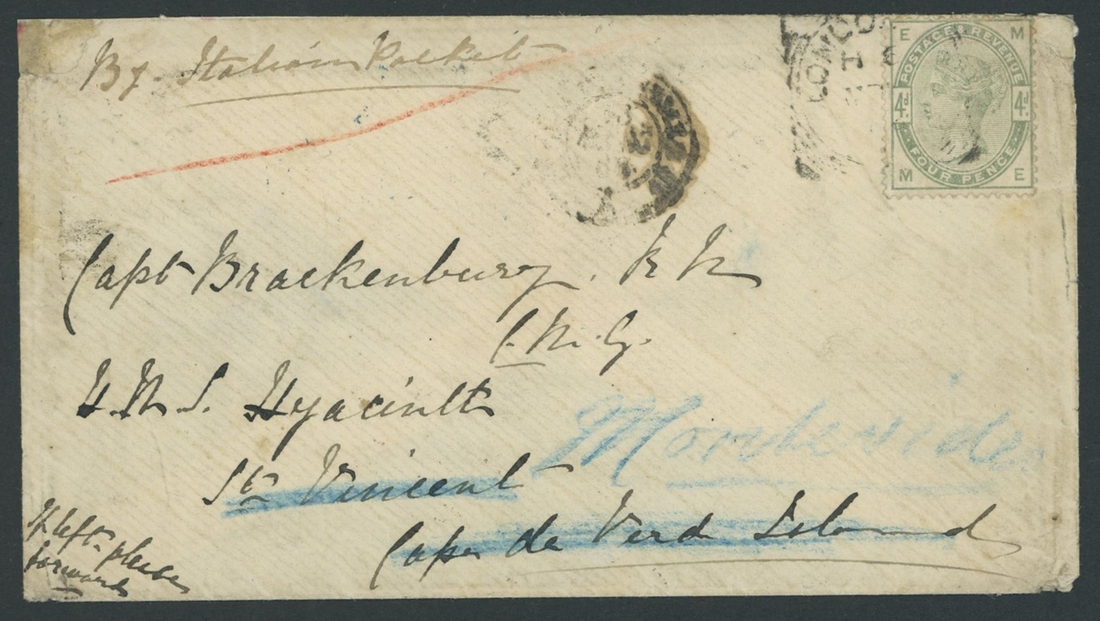 By Italian Packet
E M
POSTAGE & REVENUE
4d 4d
FOUR PENCE
M E
Capt Brackenbury. R N
C.M.G.
H.M.S. Hyacinth
St Vincent
Montevideo
Cape de Verd Island
If left please
forward